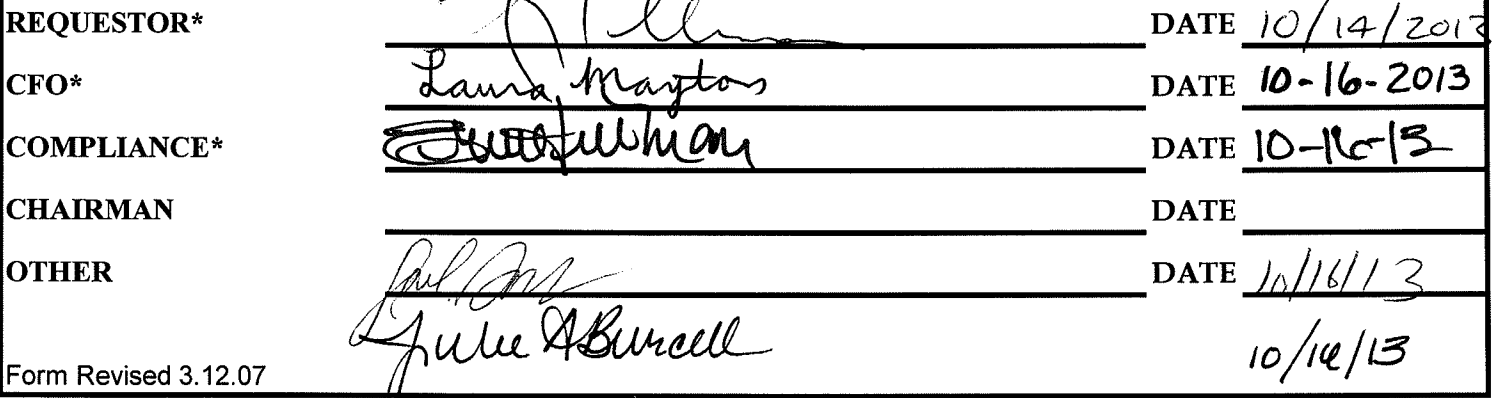 REQUESTOR* DATE 10/14/2013
CFO* Laura Mayton DATE 10-16-2013
COMPLIANCE* DATE 10-16-13
CHAIRMAN DATE
OTHER DATE 10/16/13
Julie A Burcell 10/16/13
Form Revised 3.12.07